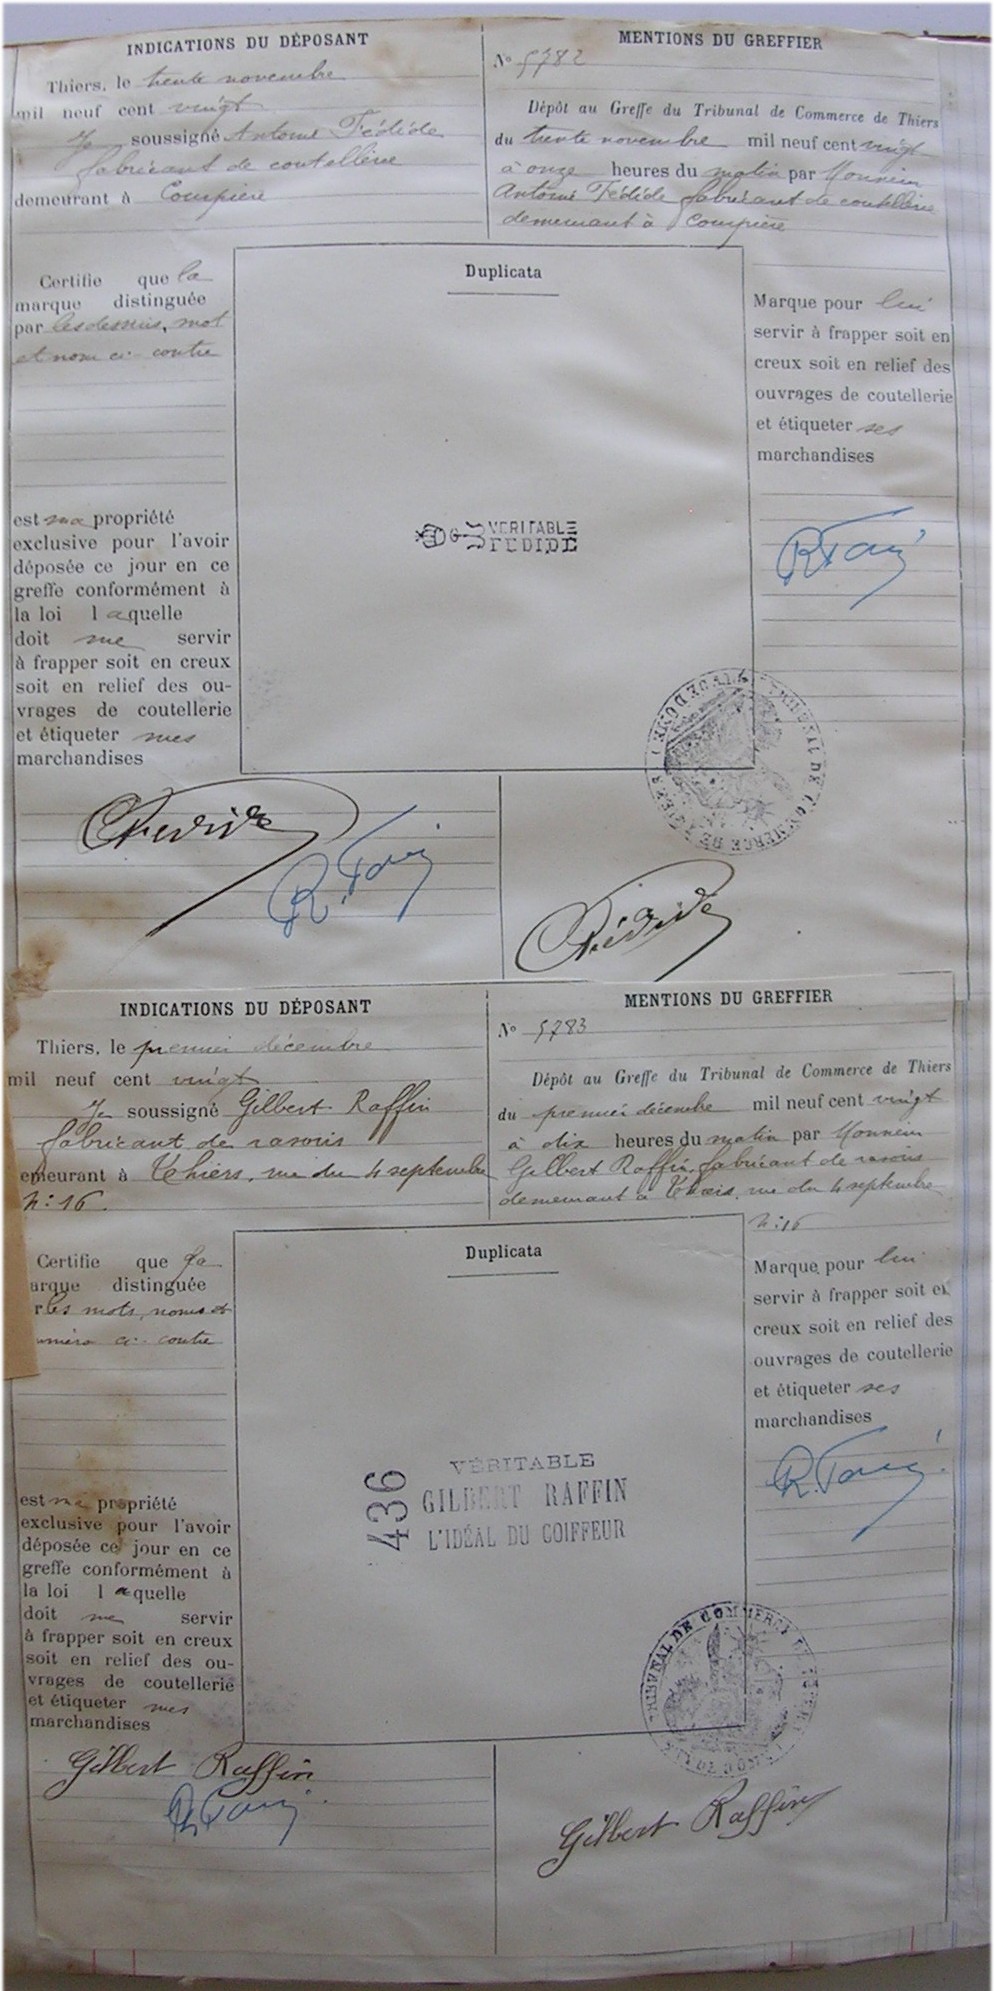 INDICATIONS DU DÉPOSANT
Thiers, le trente novembre
mil neuf cent vingt
Je soussigné Antoine Fédide
fabricant de coutellerie
demeurant à Courpière
MENTIONS DU GREFFIER
No 5782
Dépôt au Greffe du Tribunal de Commerce de Thiers
du trente novembre mil neuf cent vingt
à onze heures du matin par Monsieur
Antoine Fédide fabricant de coutellerie
demeurant à Courpière
Certifie que la
marque distinguée
par les dessins, mot
et nom ci-contre
est ma propriété
exclusive pour l'avoir
déposée ce jour en ce
greffe conformément à
la loi laquelle
doit me servir
à frapper soit en creux
soit en relief des ou-
vrages de coutellerie
et étiqueter mes
marchandises
Duplicata
VERITABLE
FEDIDE
Marque pour lui
servir à frapper soit en
creux soit en relief des
ouvrages de coutellerie
et étiqueter ses
marchandises
TRIBUNAL DE COMMERCE DE THIERS
Fédide
Fédide
INDICATIONS DU DÉPOSANT
Thiers, le premier décembre
mil neuf cent vingt
Je soussigné Gilbert Raffin
fabricant de rasoirs
emeurant à Thiers, rue du 4 septembre
N: 16.
MENTIONS DU GREFFIER
No 5783
Dépôt au Greffe du Tribunal de Commerce de Thiers
du premier décembre mil neuf cent vingt
à dix heures du matin par Monsieur
Gilbert Raffin, fabricant de rasoirs
demeurant à Thiers, rue du 4 septembre
N: 16
Certifie que la
arque distinguée
r les mots, noms et
uméro ci-contre
est ma propriété
exclusive pour l'avoir
déposée ce jour en ce
greffe conformément à
la loi laquelle
doit me servir
à frapper soit en creux
soit en relief des ou-
vrages de coutellerie
et étiqueter mes
marchandises
Duplicata
436
VÉRITABLE
GILBERT RAFFIN
L'IDÉAL DU COIFFEUR
Marque pour lui
servir à frapper soit en
creux soit en relief des
ouvrages de coutellerie
et étiqueter ses
marchandises
TRIBUNAL DE COMMERCE DE THIERS
Gilbert Raffin
Gilbert Raffin